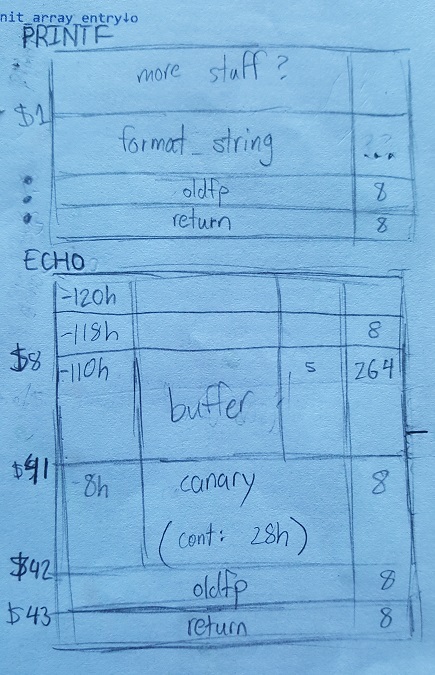 nit_array_entry↓o
PRINTF
more stuff?
$1
format_string
??
...
oldfp 8
return 8
ECHO
-120h
-118h 8
$8 -110h 5 264
buffer
$41 -8h canary 8
(cont: 28h)
$42
oldfp 8
$43
return 8